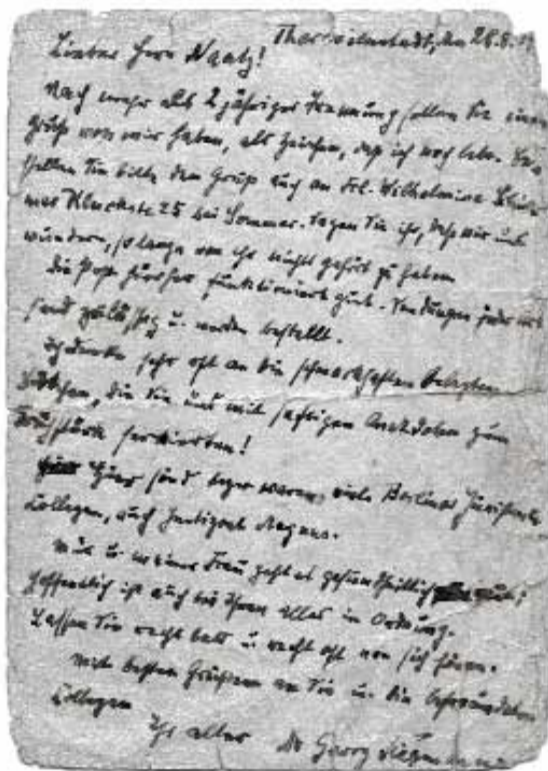 Theresienstadt, den 28.8.
Lieber Herr Naatz!
Nach mehr als 2 jähriger Trennung sollen Sie einen
Gruß von mir haben, als Zeichen, daß ich noch lebe.
stellen Sie bitte den Gruß auch an Frl. Wilhelmine
25 bei Sommer. Sagen Sie ihr, daß wir uns
wundern, so lange von ihr nichts gehört zu haben
Die Post hierher funktioniert gut. Sendungen jeder Art
sind zulässig u. werden bestellt.
Ich denke sehr oft an die schmackhaften belegten
die Sie uns mit saftigen Anekdoten zum
Frühstück servierten!
Hier sind bzw. waren, viele Berliner Juristen,
Collegen, auch Justizrat Magnus.
Mir u. meiner Frau geht es gesundheitlich gut;
hoffentlich ist auch bei Ihnen alles in Ordnung.
Lassen Sie recht bald u. recht oft von sich hören.
Mit besten Grüßen an Sie u. die befreundeten
Collegen
Ihr alter Dr Georg